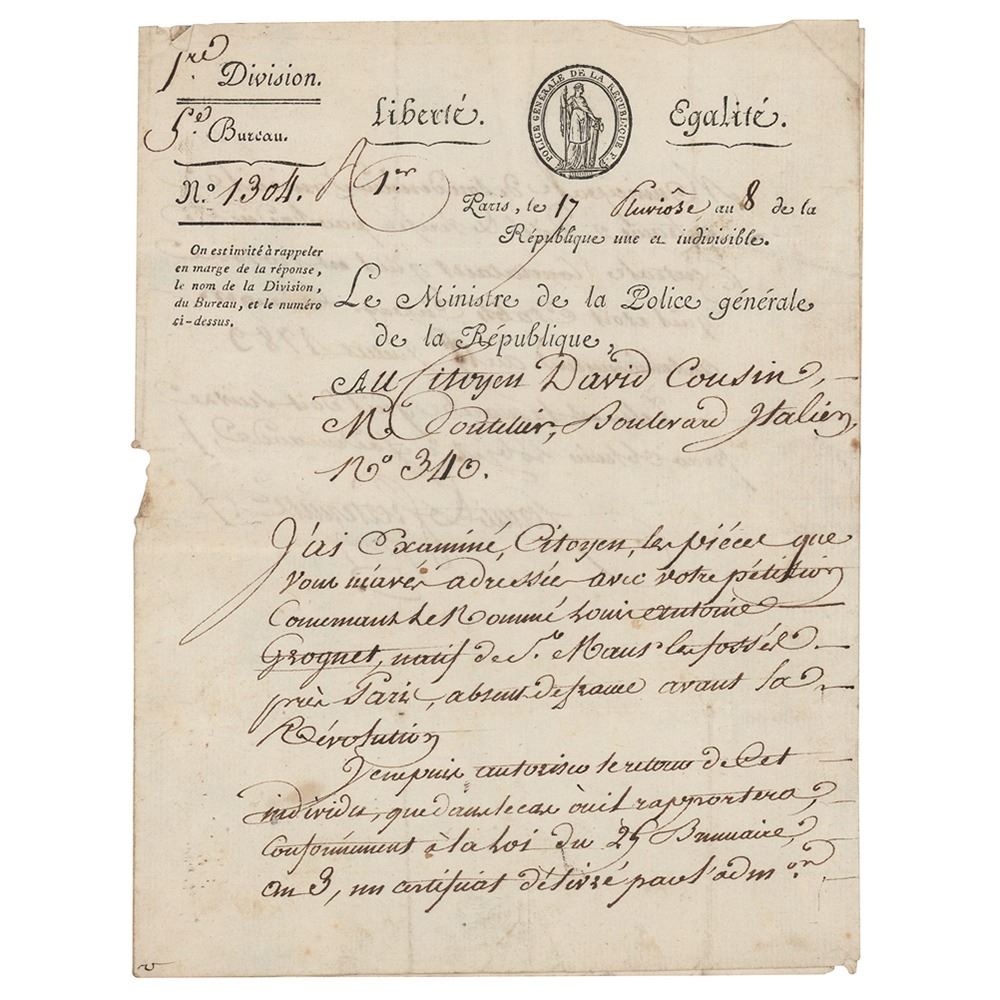 1re Division.
5e Bureau.
N.º 1304. 1er
On est invité à rappeler
en marge de la réponse,
le nom de la Division,
du Bureau, et le numéro
ci-dessus.
Liberté.
POLICE GÉNÉRALE DE LA RÉPUBLIQUE F.
Egalité.
Paris, le 17 Pluviôse an 8 de la
République une et indivisible.
Le Ministre de la Police générale
de la République,
Au Citoyen David Cousin,
Boulevard Italien,
Nº 340.
J'ai Examiné, Citoyen, les piéces que
vous m'avés adressées avec votre pétition
Concernant le Nommé Louis antoine
Grognet, natif de St. Maur les fossés
près Paris, absent de france avant la
Révolution
Je ne puis autoriser le retour de Cet
individu, que dans le cas où il rapportera,
conformément à la Loi du 25 Brumaire,
an 3, un certificat délivré par l'adm.on